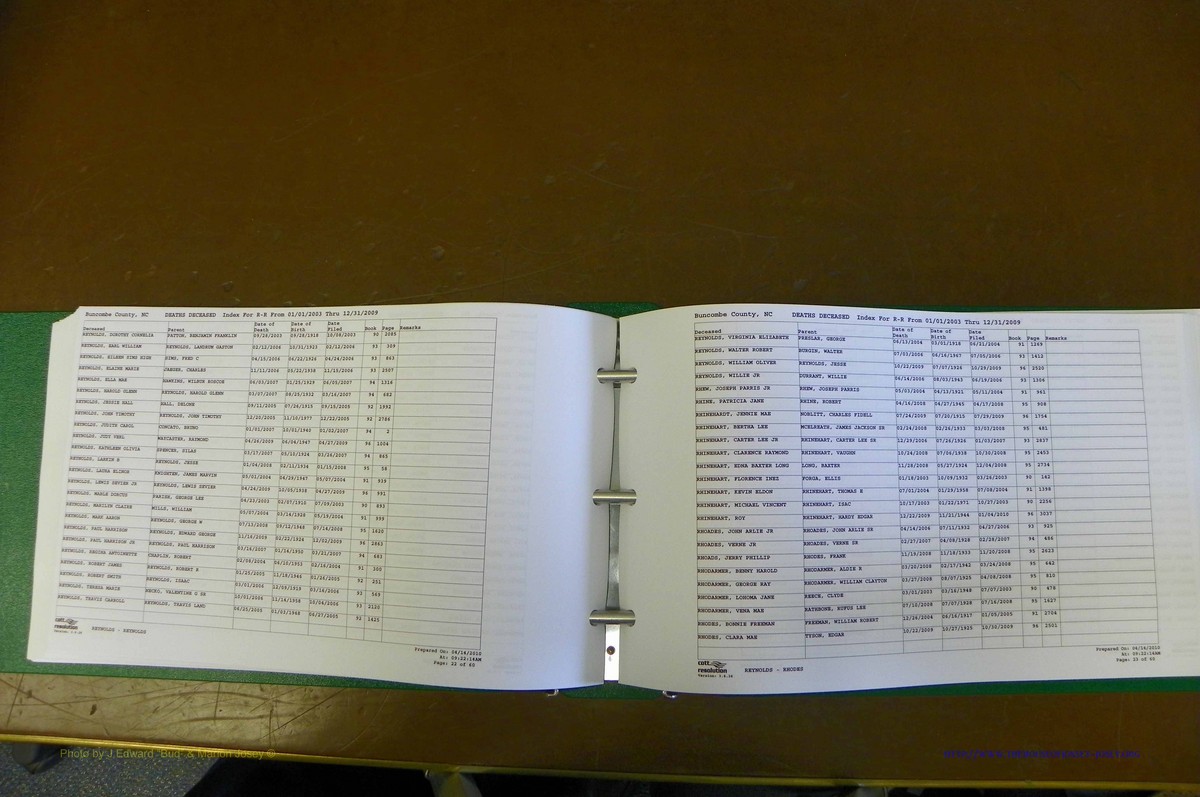 Buncombe County, NC DEATHS DECEASED Index For R-R From 01/01/2003 Thru 12/31/2009
Deceased Parent Date of Death Date of Birth Date Filed Book Page Remarks
REYNOLDS, DOROTHY CORNELIA PATTON, BENJAMIN FRANKLIN 09/28/2003 09/28/1918 10/08/2003 90 2085
REYNOLDS, EARL WILLIAM REYNOLDS, LANDRUM GASTON 02/12/2006 10/31/1923 02/12/2006 93 309
REYNOLDS, EILEEN SIMS, FRED C 04/15/2006 06/22/1926 04/24/2006 93 863
REYNOLDS, ELAINE MARIE JAEGER, CHARLES 11/11/2006 05/22/1936 11/15/2006 93 2507
REYNOLDS, ELLA MAE HAWKINS, WILBUR ROSCOE 06/03/2007 01/25/1929 06/05/2007 94 1316
REYNOLDS, HAROLD GLENN REYNOLDS, HAROLD GLENN 03/07/2007 08/25/1952 03/16/2007 94 682
REYNOLDS, JESSIE HALL HALL, DELONE 09/11/2005 07/26/1915 09/15/2005 92 1992
REYNOLDS, JOHN TIMOTHY REYNOLDS, JOHN TIMOTHY 12/20/2005 11/10/1977 12/22/2005 92 2786
REYNOLDS, JUDITH CAROL BRUNO 01/01/2007 10/01/1940 01/02/2007 94 2
REYNOLDS, JUDY VERL RAYMOND 04/26/2009 04/04/1947 04/27/2009 96 1004
REYNOLDS, KATHLEEN OLIVIA SPENCER, SILAS 03/17/2007 94 865
REYNOLDS, LARKIN B REYNOLDS, JESSE 01/04/2008 02/11/1934 01/15/2008 95 58
REYNOLDS, LAURA ELINOR KNIGHTEN, JAMES MARVIN 05/01/2004 05/07/2004 91 939
REYNOLDS, LEWIS SEVIER JR REYNOLDS, LEWIS SEVIER 04/24/2009 10/05/1938 04/27/2009 96 991
REYNOLDS, MABLE DORCUS PARKER, GEORGE LEE 04/23/2003 02/07/1910 05/09/2003 90 893
REYNOLDS, MARILYN CLAIRE MILLS, WILLIAM 05/07/2004 03/14/1928 05/19/2004 91 999
REYNOLDS, MARK AARON REYNOLDS, GEORGE W 07/13/2008 09/12/1948 07/14/2008 95 1620
REYNOLDS, PAUL HARRISON REYNOLDS, EDWARD GEORGE 11/16/2009 02/22/1924 12/03/2009 96 2863
REYNOLDS, PAUL HARRISON JR REYNOLDS, PAUL HARRISON 03/16/2007 01/14/1950 03/21/2007 94 683
REYNOLDS, REGINA ANTOINETTE CHAPLIN, ROBERT 02/08/2004 02/18/2004 91 300
REYNOLDS, ROBERT JAMES REYNOLDS, ROBERT 01/25/2005 11/18/1946 01/26/2005 92 251
REYNOLDS, ROBERT SMITH REYNOLDS, ISAAC 03/01/2006 12/09/1918 03/16/2006 93 569
REYNOLDS, TERESA MARIE VALENTINE D SR 10/01/2006 11/14/1958 10/04/2006 93 2120
REYNOLDS, TRAVIS CARROLL REYNOLDS, TRAVIS LAND 04/25/2005 01/03/1949 04/27/2005 92 1425
cott
resolution
REYNOLDS - REYNOLDS
Prepared On: 04/14/2010
At: 09:22:14AM
Page: 22 of 60
Buncombe County, NC DEATHS DECEASED Index For R-R From 01/01/2003 Thru 12/31/2009
Deceased Parent Date of Death Date of Birth Date Filed Book Page Remarks
REYNOLDS, VIRGINIA ELIZABETH PRESLAR, GEORGE 06/13/2004 03/01/1918 06/23/2004 91 1269
REYNOLDS, WALTER ROBERT BURGIN, WALTER 07/03/2006 06/16/1947 07/05/2006 93 1412
REYNOLDS, WILLIAM OLIVER REYNOLDS, JESSE 10/22/2009 07/07/1926 10/28/2009 96 2520
REYNOLDS, WILLIE JR DURHANT, WILLIE 06/14/2006 08/03/1943 06/19/2006 93 1306
RHEW, JOSEPH PARRIS JR RHEW, JOSEPH PARRIS 05/03/2004 04/13/1921 05/11/2004 91 961
RHINE, PATRICIA JANE RHINE, ROBERT 04/16/2008 04/27/1965 04/17/2008 95 908
RHINEHARDT, JENNIE MAE NOBLITT, CHARLES FIDELL 07/24/2009 07/20/1915 07/29/2009 96 1754
RHINEHART, BERTHA LEE MCELREATH, JAMES JACKSON SR 02/24/2008 02/26/1935 03/03/2008 95 481
RHINEHART, CARTER LEE JR RHINEHART, CARTER LEE SR 12/29/2006 07/26/1926 01/03/2007 93 2837
RHINEHART, CLARENCE RAYMOND RHINEHART, VAUGHN 10/24/2008 07/06/1938 10/30/2008 95 2453
RHINEHART, EDNA BAXTER LONG LONG, BAXTER 11/28/2008 05/27/1924 12/04/2008 95 2734
RHINEHART, FLORENCE INEZ FORGA, ELLIS 01/18/2003 10/09/1932 03/26/2003 90 142
RHINEHART, KEVIN ELDON RHINEHART, THOMAS S 07/01/2004 01/29/1958 07/08/2004 91 1398
RHINEHART, MICHAEL VINCENT RHINEHART, ISAC 10/17/2003 01/22/1971 10/27/2003 90 2256
RHINEHART, ROY RHINEHART, HARDY EDGAR 12/22/2009 11/21/1944 01/04/2010 96 3037
RHOADES, JOHN ARLIE JR RHOADES, JOHN ARLIE SR 04/14/2006 07/11/1932 04/27/2006 93 925
RHOADES, VERNE JR RHOADES, VERNE SR 02/27/2007 04/09/1928 02/28/2007 94 486
RHOADS, JERRY PHILLIP RHODES, FRANK 11/19/2008 11/18/1933 11/20/2008 95 2623
RHODARMER, BENNY HAROLD RHODARMER, ALDIE R 03/20/2008 02/17/1942 03/24/2008 95 642
RHODARMER, GEORGE RAY RHODARMER, WILLIAM CLAYTON 03/27/2008 08/07/1925 04/08/2008 95 810
RHODARMER, LOHOMA JANE REECE, CLYDE 03/01/2003 03/16/1948 07/07/2003 90 478
RHODARMER, VENA MAE RATHBONE, RUFUS LEE 07/10/2008 07/07/1928 07/16/2008 95 1627
RHODES, BONNIE FREEMAN FREEMAN, WILLIAM ROBERT 12/26/2004 06/16/1917 01/05/2005 91 2704
RHODES, CLARA MAE TYSON, EDGAR 10/22/2009 10/27/1920 10/30/2009 96 2501
cott
resolution
REYNOLDS - RHODES
Prepared On: 04/14/2010
At: 09:22:14AM
Page: 23 of 60
Photo by J.Edward "Bud" & Marion Josey ©